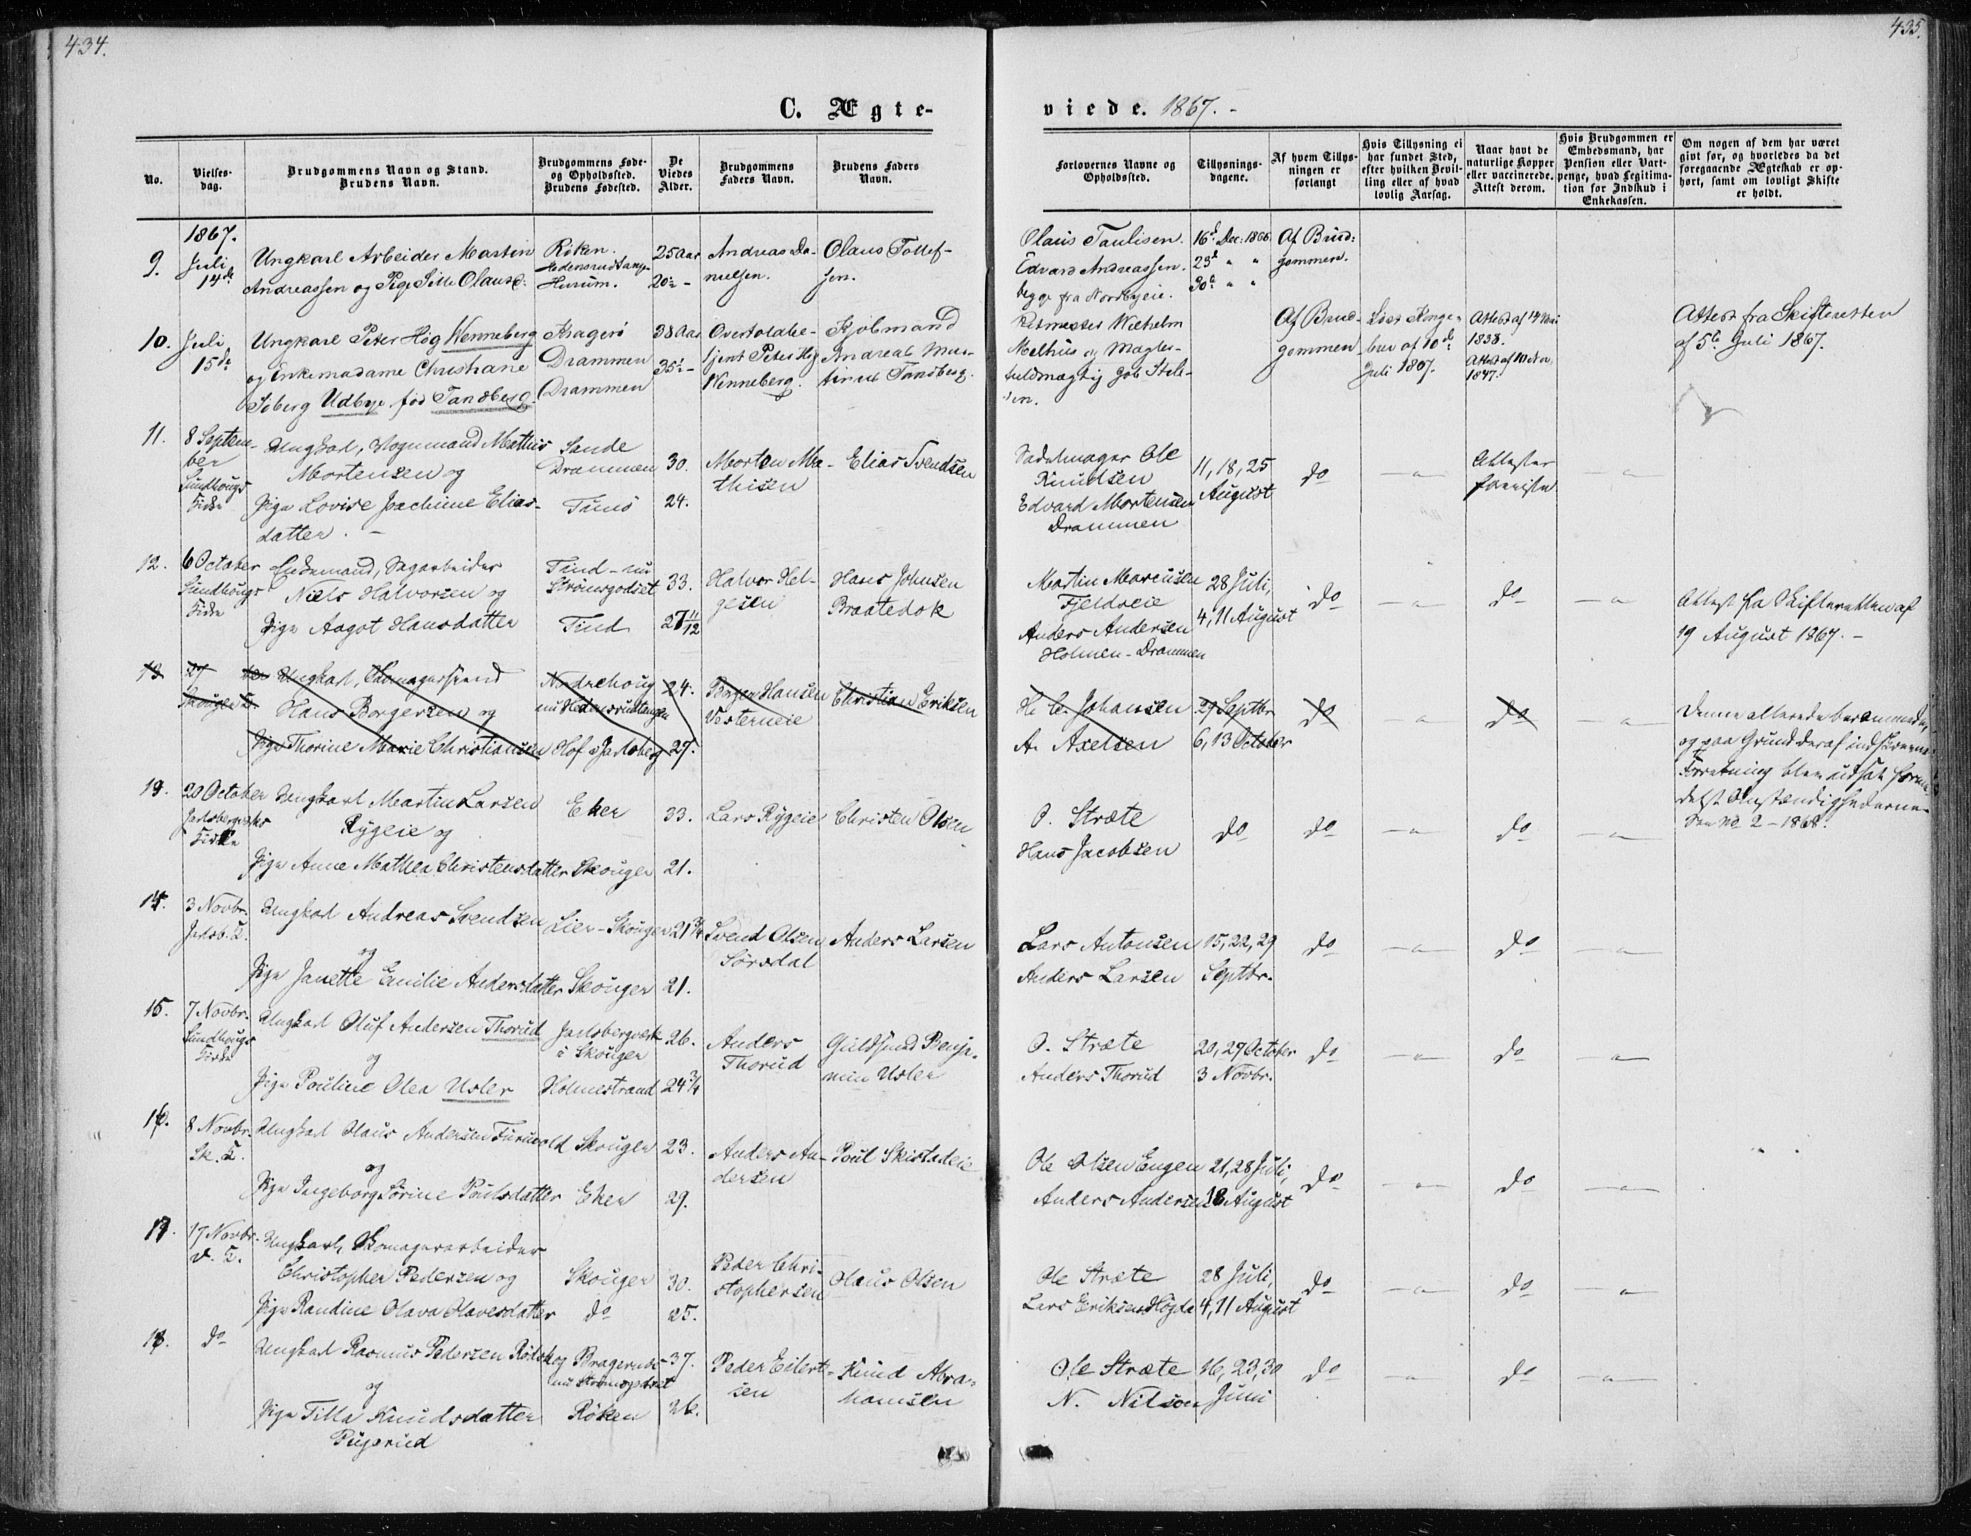 434.
435.
C. Ægte-
viede. 1867. -
No.
Vielses-
dag.
Brudgommens Navn og Stand.
Brudens Navn.
Brudgommens Føde-
og Opholdssted.
Brudens Fødested.
De
Viedes
Alder.
Brudgommens
Faders Navn.
Brudens Faders
Navn.
Forlovernes Navne og
Opholdssted.
Tillysnings-
dagene.
Af hvem Tillys-
ningen er
forlangt
Hvis Tillysning ei
har fundet Sted,
efter hvilken Bevil-
ling eller af hvad
lovlig Aarsag.
Naar havt de
naturlige Kopper
eller vaccinerede.
Attest derom.
Hvis Brudgommen er
Embedsmand, har
Pension eller Vart-
penge, hvad Legitima-
tion for Indskud i
Enkekassen.
Om nogen af dem har været
gift før, og hvorledes da det
foregaaende Ægteskab er op-
hørt, samt om lovligt Skifte
er holdt.
1867.
9.
Juli
14de
Ungkarl Arbeider Martin
Andreassen og Pige Sille Olausd.
Røken.
Hurum.
25 Aar
20 - -
Andreas Da-
nielsen.
Olaus Tollef-
sen.
Olaus Paulsen.
Edvard Andreassen.
begge fra Nordbyeie.
16d Dec: 1866.
23d " "
30d " "
Af Brud-
gommen.
10.
Juli
15de
Ungkarl Peter Høg Wenneberg
og Enkemadame Christiane
Soberg Udbye fød Tandberg.
Kragerø
Drammen
Drammen
38 Aar
35 - -
Overtoldbe-
tjent Peter Høg
Wenneberg.
Kjøbmand
Andreas Mar-
tinus Tandberg.
Ritmester Wilhelm
Melhus og Mægler-
fuldmægtig Job Stil-
sen.
Af Brud-
gommen
Løst Konge-
brev af 10de
Juli 1867.
Attest af 14 Mai
1838.
Attest af 10 Nov.
1847.
Attest fra Skifteretten
af 5te Juli 1867.
11.
8 Septem-
ber
Sundhougs
Kirke
Ungkarl, Vognmand Mathis
Mortensen og
Pige Lovise Jachime Elias-
datter. -
Sande
Drammen
30.
24.
Morten Ma-
thisen
Elias Svendsen
Sadelmager Ole
Knudsen
Edvard Mortensen
Drammen
11, 18, 25
August
do
- " -
Attester
foreviste
- " -
12.
6 October
Sundhougs
Kirke
Enkemand, Sagarbeider
Niels Halvorsen og
Pige Aagot Hansdatter
Tind - nu
Strømsgodset
Tind
33.
27 11/12
Halvor Hel-
gesen
Hans Johnsen
Braatedok
Martin Marcusen
Fjeldveie
Anders Andersen
Holmen - Drammen
28 Juli,
4, 11 August
do
- " -
do
- " -
Attest fra Skifteretten af
19 August 1867. -
13
27
Skouger K.
Ungkarl, Skomagersvend
Hans Borgersen og
Pige Thorine Marie Christiansen
Norderhoug
nu Hedensrudtangen
Hof i Jarlsberg
24.
27.
Borger Hansen
Vesterneie
Christian Eriksen
H. C. Johansen
A. Axelsen
29 Septbr.
6, 13 October
do
- " -
do
- " -
Denne allerede berammede,
og paa Grund deraf indskrevne
Forretning blev udsat forme-
delst Omstændighederne.
See No 2 - 1868.
13.
20 October
Jarlsbergværks
Kirke
Ungkarl Martin Larsen
Rygeie og
Pige Anne Mathea Christensdatter
Eker
Skouger
33.
21.
Lars Rygeie
Christen Olsen
O. Stræte
Hans Jacobsen
do
do
- " -
do
- " -
14.
3 Novbr.
Jarlsb. K.
Ungkarl Andreas Svendsen
og
Pige Janette Emilie Andersdatter
Lier - Skouger
Skouger
21 3/4
21.
Svend Olsen
Sørsdal
Anders Larsen
Lars Antonsen
Anders Larsen
15, 22, 29
Septbr.
do
- " -
do
- " -
15.
7 Novbr.
Sundhougs
Kirke
Ungkarl Oluf Andersen Thorud
og
Pige Pouline Olea Usler
Jarlsbergværk
i Skouger
Holmestrand
26.
24 3/4
Anders
Thorud
Guldsmed Benja-
min Usler
O. Stræte
Anders Thorud
20, 27 October
3 Novbr.
do
- " -
do
- " -
16.
8 Novbr.
Sk. K.
Ungkarl Olaus Andersen Furuvold
og
Pige Ingeborg Sørine Poulsdatter
Skouger
Eker
23.
29.
Anders An-
dersen
Poul Skistadeie
Ole Olsen Engen
Anders Andersen
21, 28 Juli,
18 August
do
- " -
do
- " -
17.
17 Novbr.
S. K.
Ungkarl, Skomagerarbeider
Christopher Pedersen og
Pige Randine Olava Olavesdatter
Skouger
do
30.
25.
Peder Chri-
stophersen
Olaus Olsen
Ole Stræte
Lars Eriksen Høgda
28 Juli,
4, 11 August
do
- " -
do
- " -
18.
do
Ungkarl Rasmus Pedersen Rødskog
og
Pige Tilla Knudsdatter
Pugerud
Bragernæs
nu Strømsgodset
Røken
37.
26.
Peder Eilert-
sen
Knud Abra-
hamsen
Ole Stræte
N. Nilson
16, 23, 30
Juni
do
- " -
do
- " -